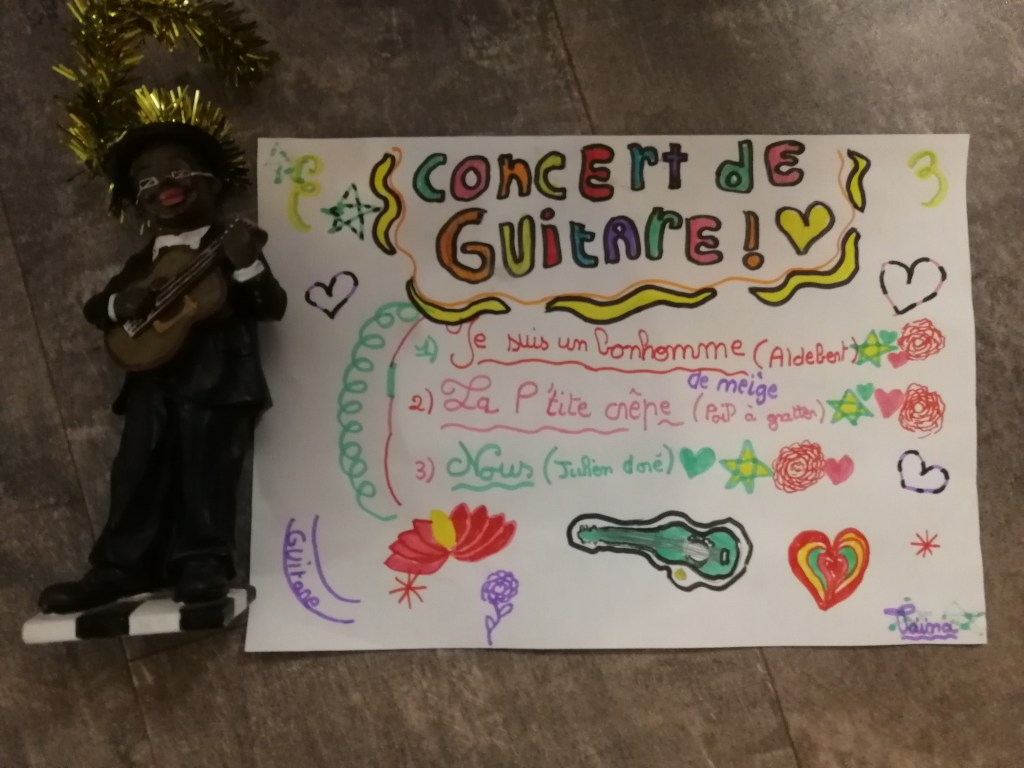 CONCERT DE
GUITARE !
1) Je suis un bonhomme (Aldebert)
de neige
2) La P'tite crêpe (PoiP à gratter)
3) Nous (Julien doré)
Guitare
Taina